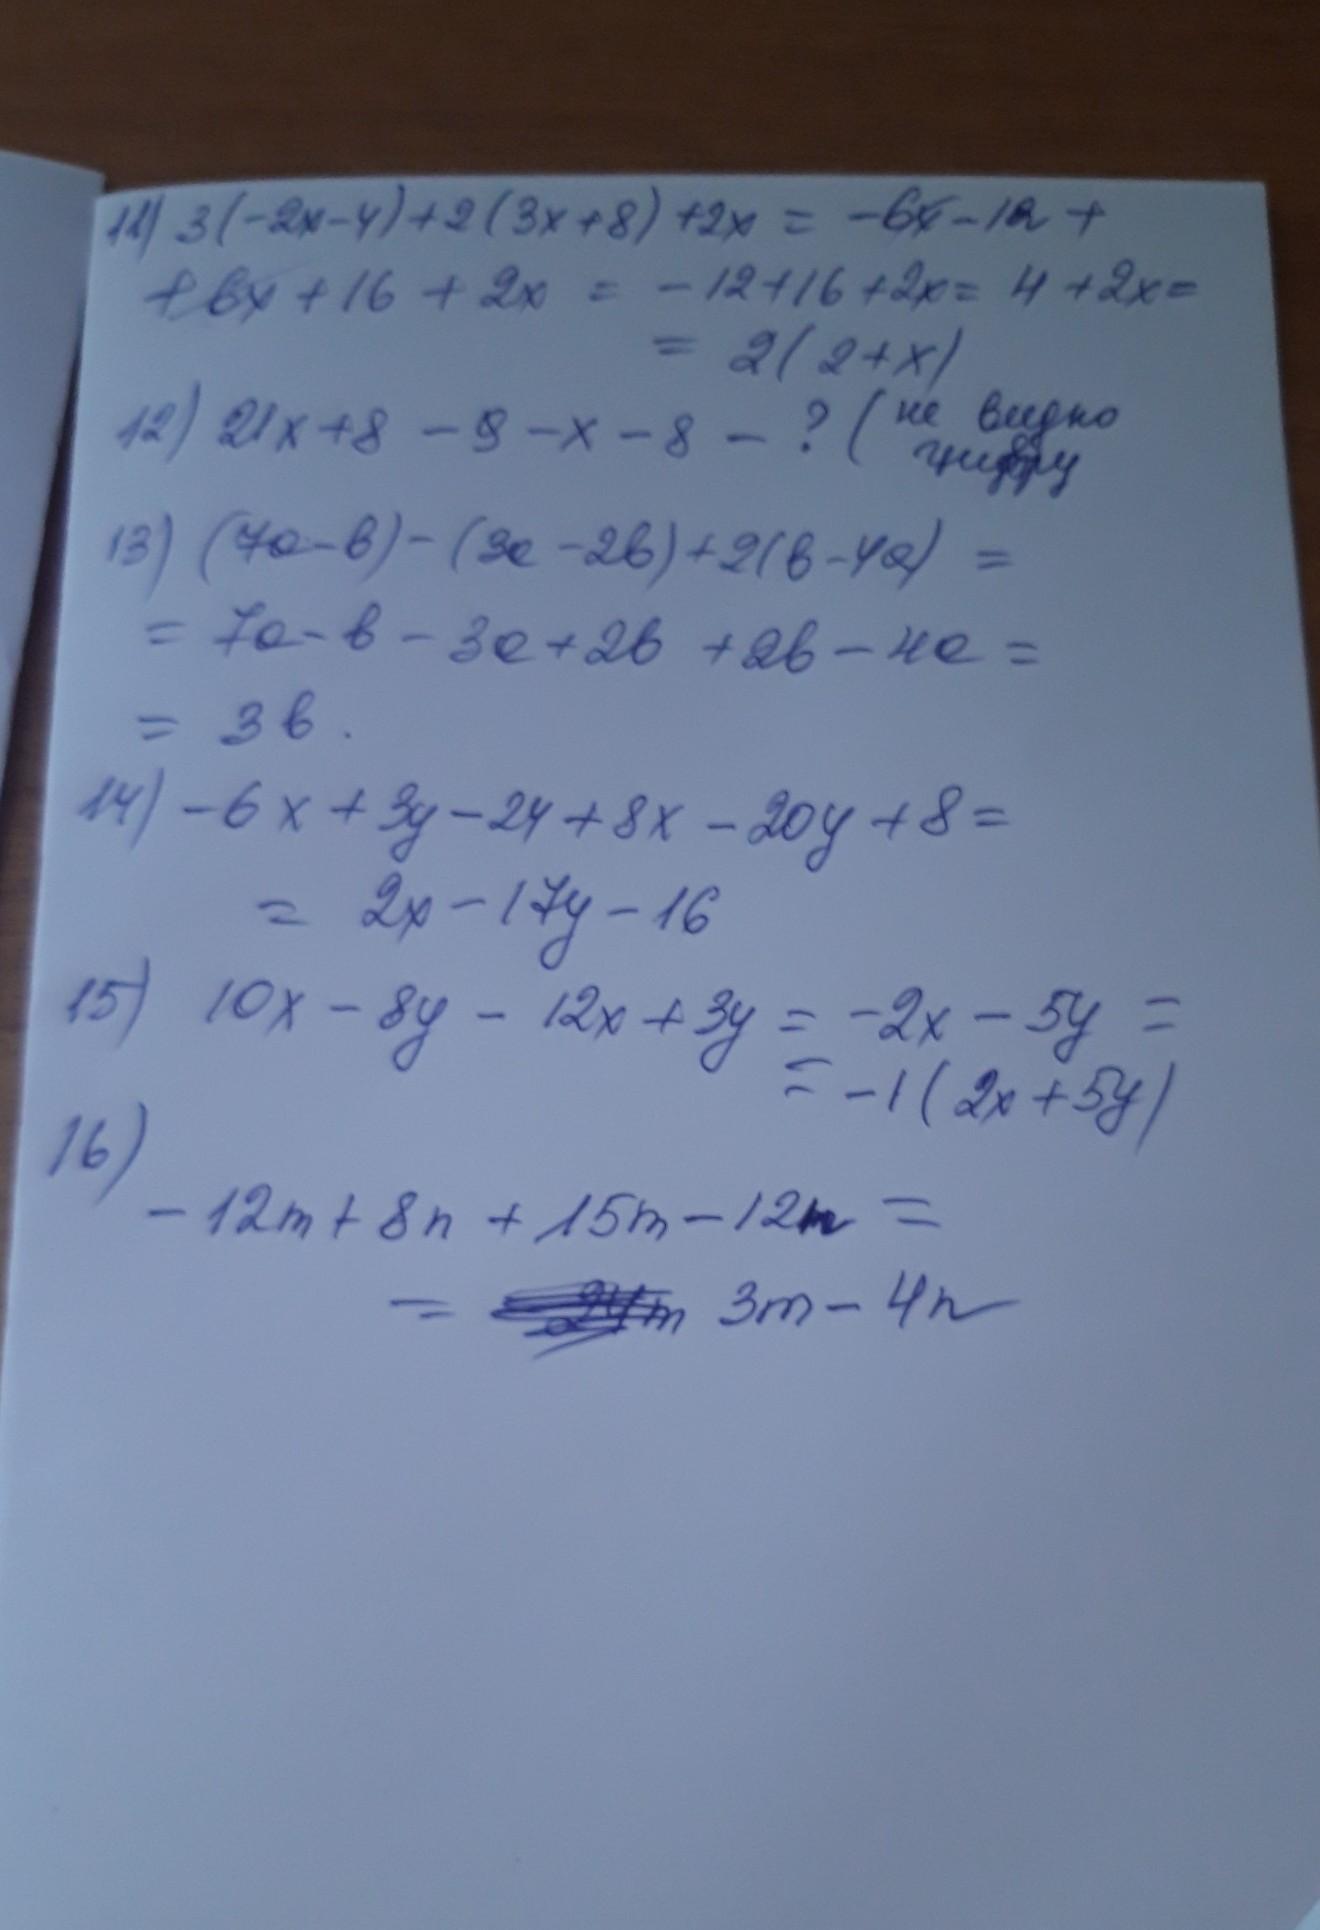 11) 3(-2x-4)+2(3x+8)+2x = -6x-12+
+6x+16+2x = -12+16+2x= 4+2x=
= 2(2+x)
12) 21x+8-9-x-8-?(не видно
цифру
13) (7a-b)-(3a-2b)+2(b-4a) =
= 7a-b-3a+2b+2b-4a =
= 3b.
14) -6x+3y-24+8x-20y+8=
= 2x-17y-16
15) 10x-8y-12x+3y = -2x-5y =
= -1(2x+5y)
16)
-12m+8n+15m-12n =
= 3m-4n